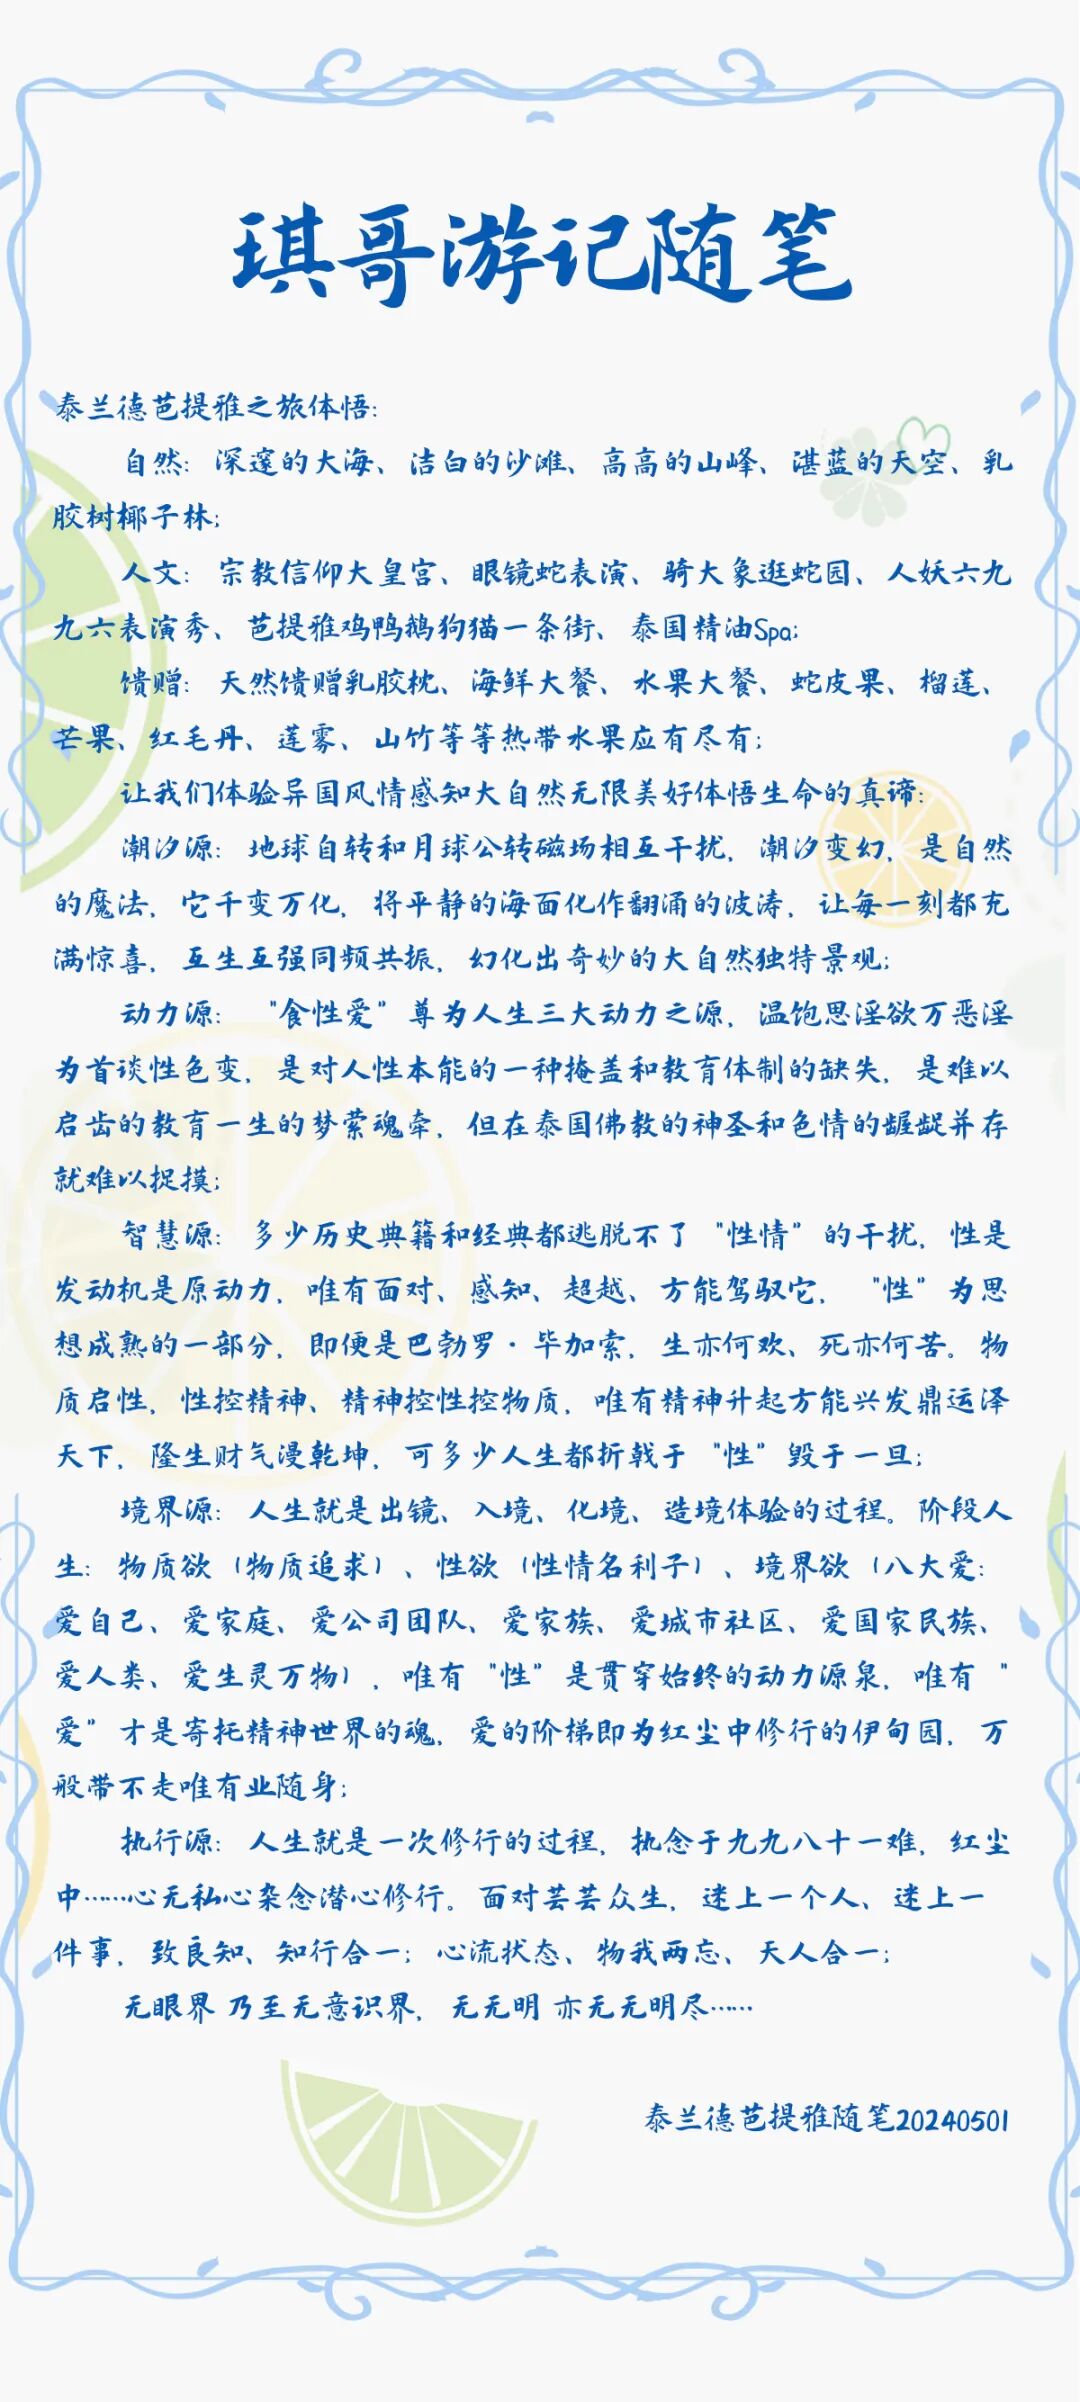 琪哥游记随笔
泰兰德芭提雅之旅体悟:
自然：深邃的大海、洁白的沙滩、高高的山峰、湛蓝的天空、乳
胶树椰子林;
人文：宗教信仰大皇宫、眼镜蛇表演、骑大象逛蛇园、人妖六九
九六表演秀、芭提雅鸡鸭鹅狗猫一条街、泰国精油Spa;
馈赠：天然馈赠乳胶枕、海鲜大餐、水果大餐、蛇皮果、榴莲、
芒果、红毛丹、莲雾、山竹等等热带水果应有尽有;
让我们体验异国风情感知大自然无限美好体悟生命的真谛:
潮汐源：地球自转和月球公转磁场相互干扰，潮汐变幻，是自然
的魔法，它千变万化，将平静的海面化作翻涌的波涛，让每一刻都充
满惊喜，互生互强同频共振，幻化出奇妙的大自然独特景观;
动力源： "食性爱" 尊为人生三大动力之源，温饱思淫欲万恶淫
为首谈性色变，是对人性本能的一种掩盖和教育体制的缺失，是难以
启齿的教育一生的梦萦魂牵，但在泰国佛教的神圣和色情的龌龊并存
就难以捉摸;
智慧源：多少历史典籍和经典都逃脱不了 "性情" 的干扰，性是
发动机是原动力，唯有面对、感知、超越、方能驾驭它， "性" 为思
想成熟的一部分，即便是巴勃罗·毕加索，生亦何欢、死亦何苦。物
质启性，性控精神、精神控性控物质，唯有精神升起方能兴发鼎运泽
天下，隆生财气漫乾坤，可多少人生都折戟于 "性" 毁于一旦;
境界源：人生就是出镜、入境、化境、造境体验的过程。阶段人
生：物质欲（物质追求）、性欲（性情名利子）、境界欲（八大爱:
爱自己、爱家庭、爱公司团队、爱家族、爱城市社区、爱国家民族、
爱人类、爱生灵万物），唯有 "性" 是贯穿始终的动力源泉，唯有 "
爱" 才是寄托精神世界的魂，爱的阶梯即为红尘中修行的伊甸园，万
般带不走唯有业随身;
执行源：人生就是一次修行的过程，执念于九九八十一难，红尘
中……心无私心杂念潜心修行。面对芸芸众生，迷上一个人、迷上一
件事，致良知、知行合一；心流状态、物我两忘、天人合一;
无眼界 乃至无意识界，无无明 亦无无明尽……
泰兰德芭提雅随笔20240501